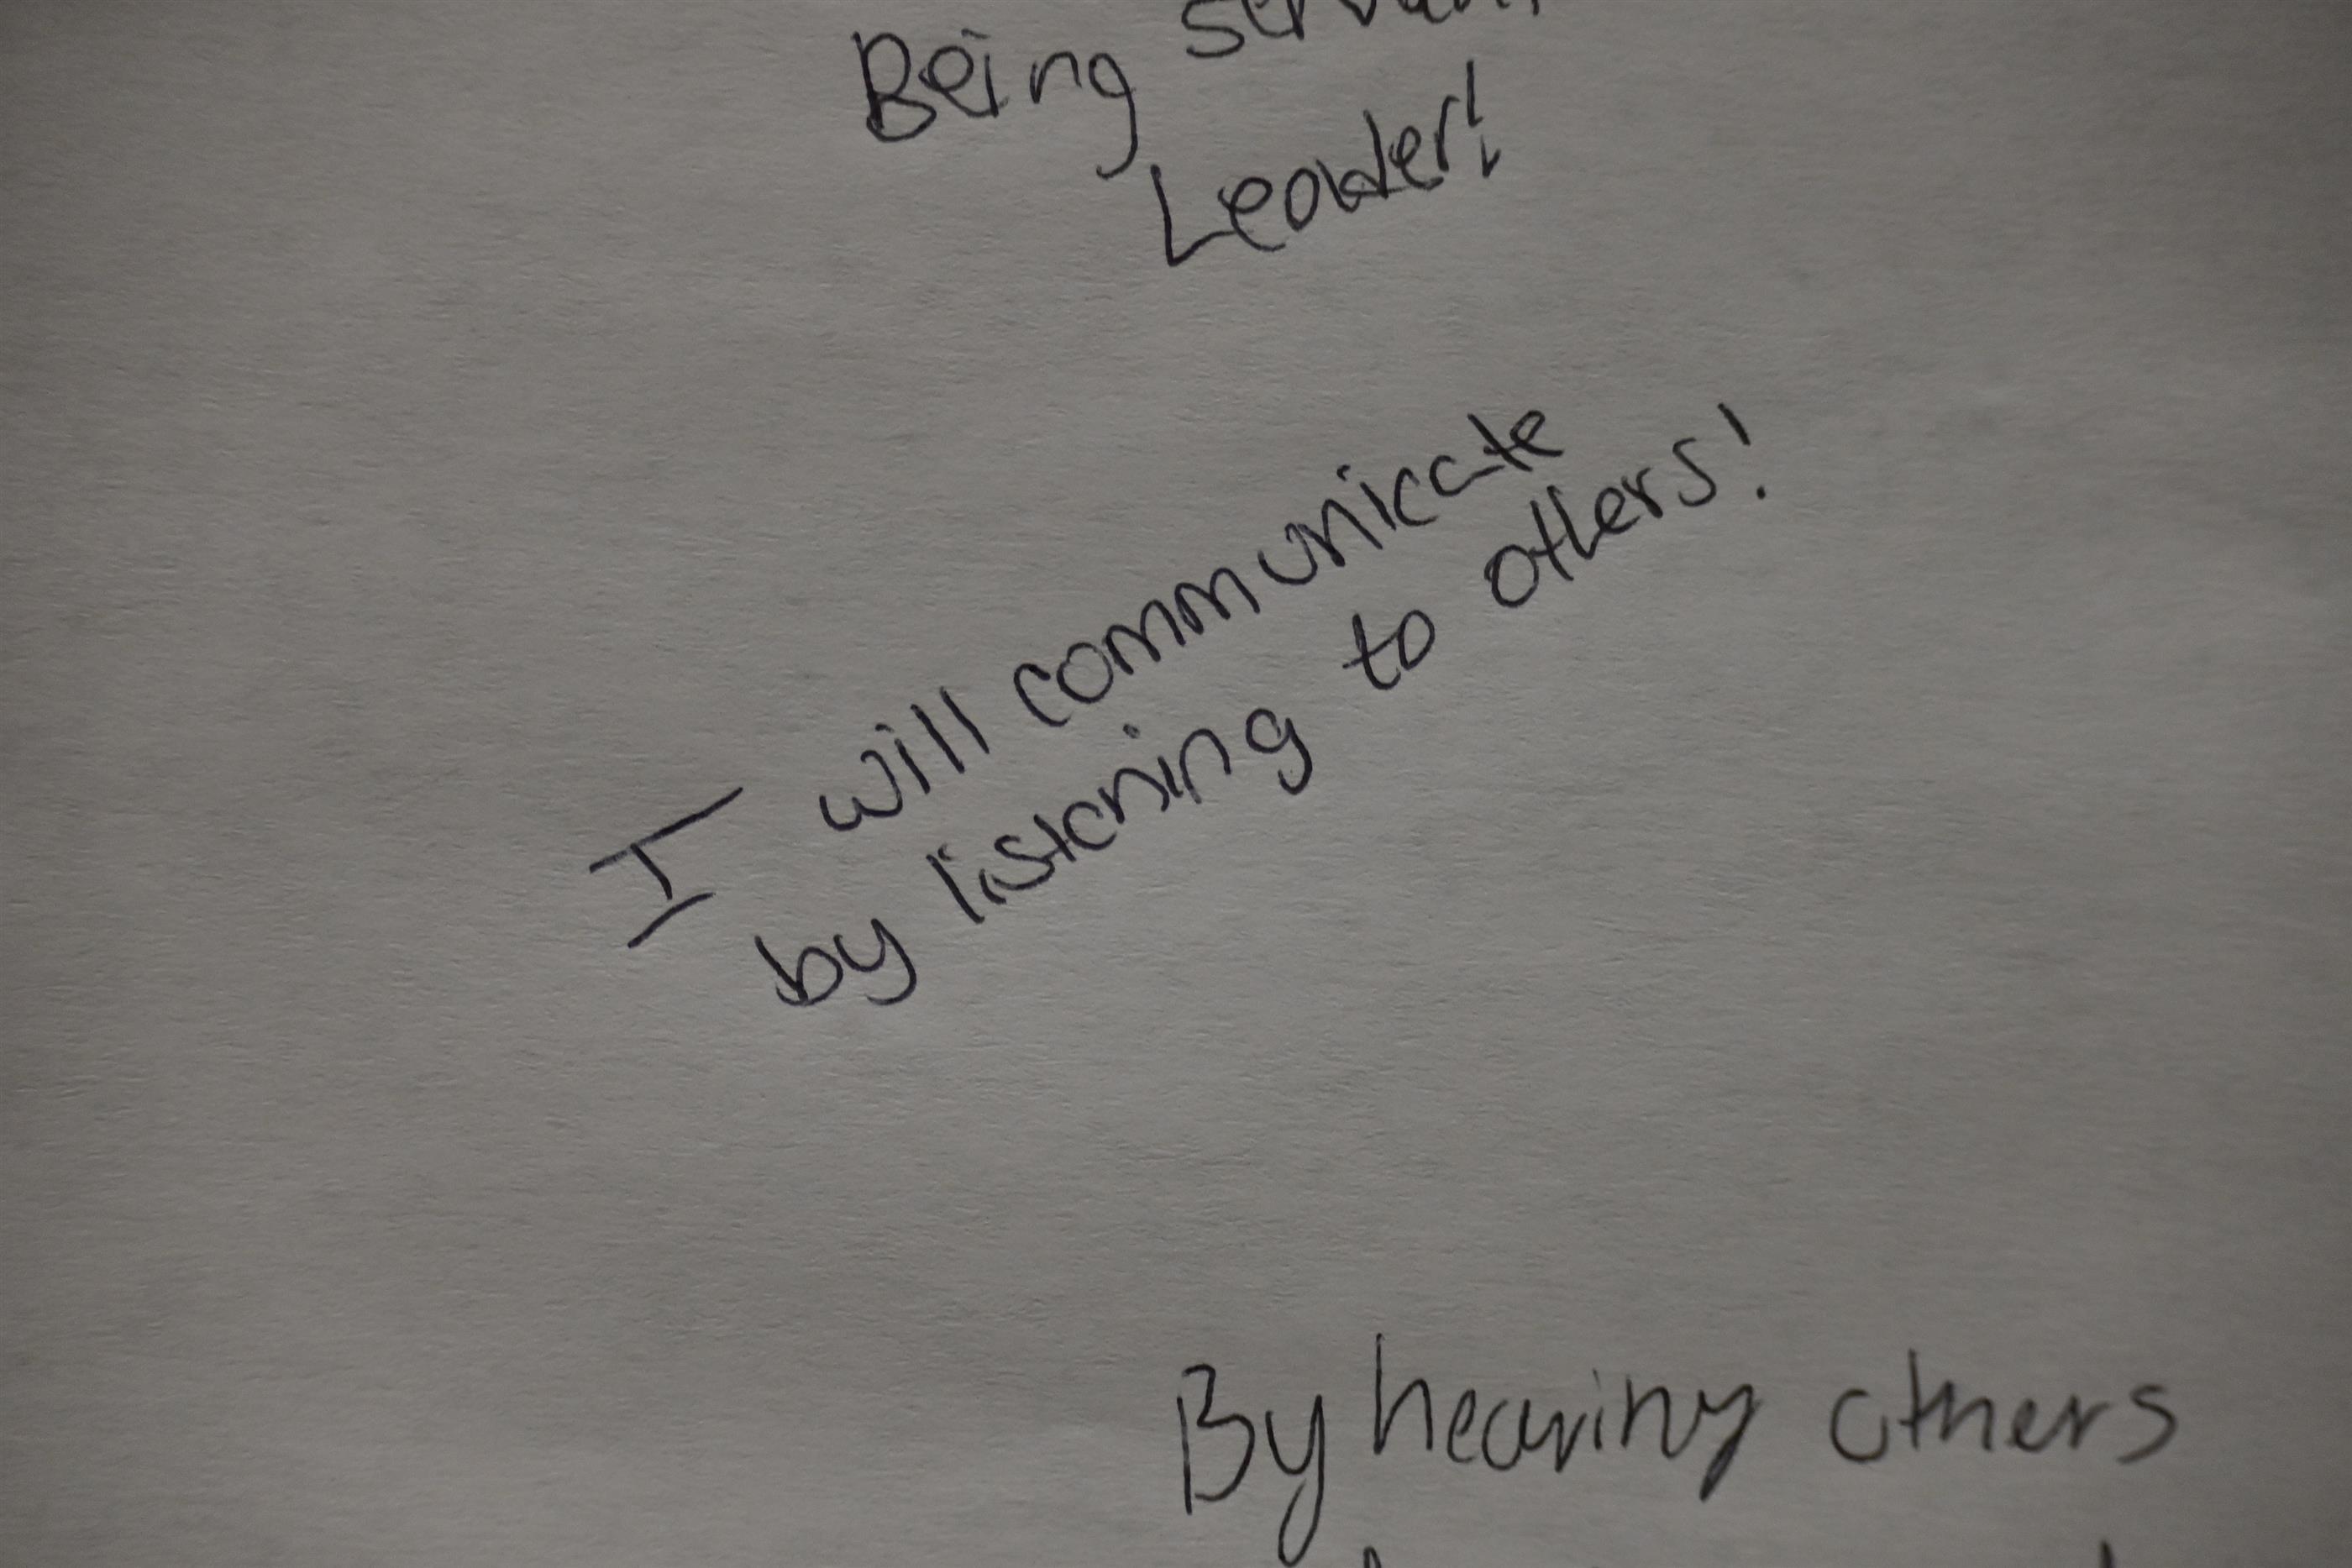 Being
Leader!
I will communicate
by listening to others!
By hearing others